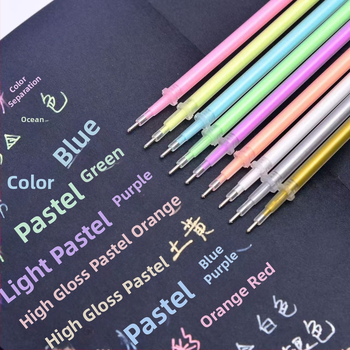 Color
Separation
色
Ocean
Blue
Green
Color
Purple
Pastel
Light Pastel
High Gloss Pastel Orange
土黄
High Gloss Pastel
Blue
Purple
Pastel
Orange Red
白色
色